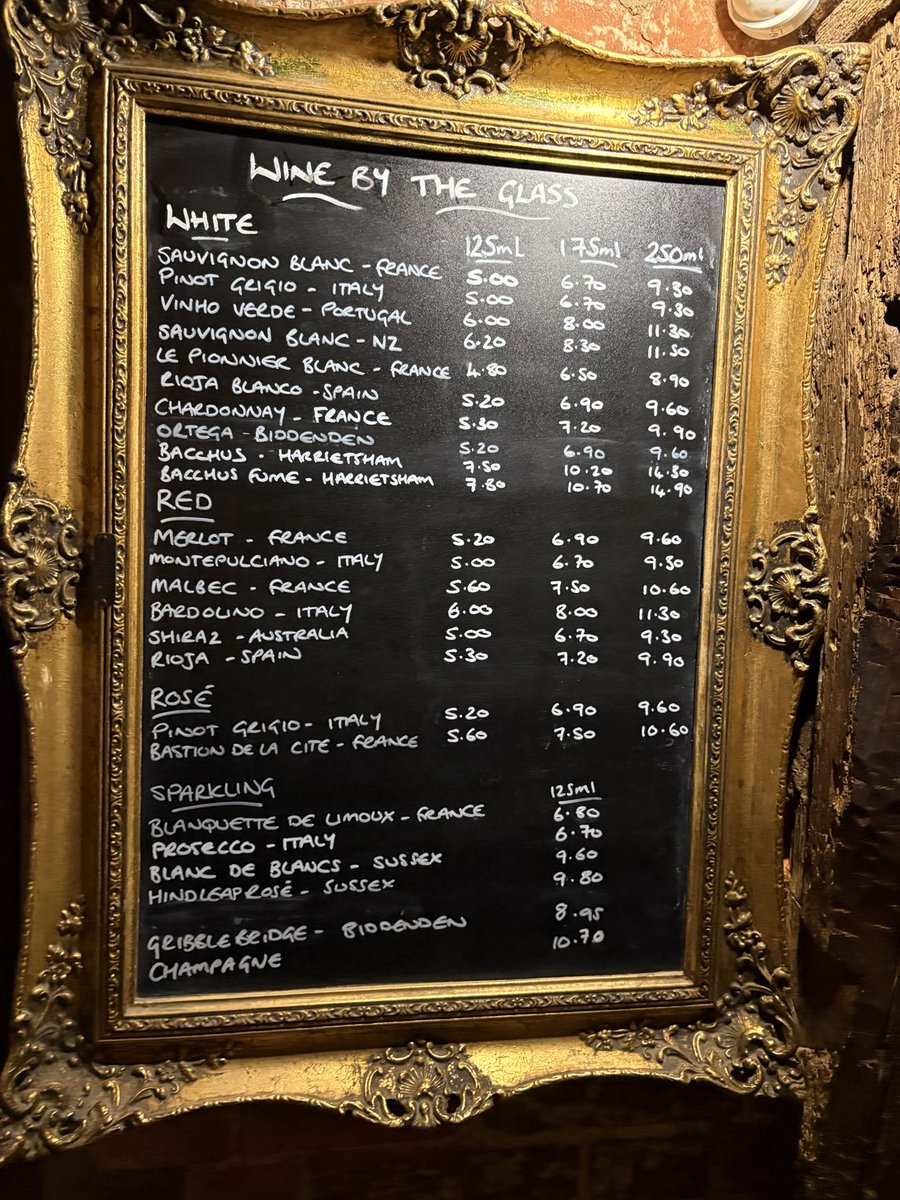 WINE BY THE GLASS
WHITE 125ml 175ml 250ml
SAUVIGNON BLANC - FRANCE 5.00 6.70 9.30
PINOT GRIGIO - ITALY 5.00 6.70 9.30
VINHO VERDE - PORTUGAL 6.00 8.00 11.30
SAUVIGNON BLANC - NZ 6.20 8.30 11.50
LE PIONNIER BLANC - FRANCE 4.80 6.50 8.90
RIOJA BLANCO - SPAIN 5.20 6.90 9.60
CHARDONNAY - FRANCE 5.30 7.20 9.90
ORTEGA - BIDDENDEN 5.20 6.90 9.60
BACCHUS - HARRIETSHAM 7.50 10.20 14.30
BACCHUS FUME - HARRIETSHAM 7.80 10.70 14.90
RED
MERLOT - FRANCE 5.20 6.90 9.60
MONTEPULCIANO - ITALY 5.00 6.70 9.30
MALBEC - FRANCE 5.60 7.50 10.60
BARDOLINO - ITALY 6.00 8.00 11.30
SHIRAZ - AUSTRALIA 5.00 6.70 9.30
RIOJA - SPAIN 5.30 7.20 9.90
ROSÉ
PINOT GRIGIO - ITALY 5.20 6.90 9.60
BASTION DE LA CITE - FRANCE 5.60 7.50 10.60
SPARKLING 125ml
BLANQUETTE DE LIMOUX - FRANCE 6.80
PROSECCO - ITALY 6.70
BLANC DE BLANCS - SUSSEX 9.60
HINDLEAP ROSÉ - SUSSEX 9.80
GRIBBLE BRIDGE - BIDDENDEN 8.95
CHAMPAGNE 10.70